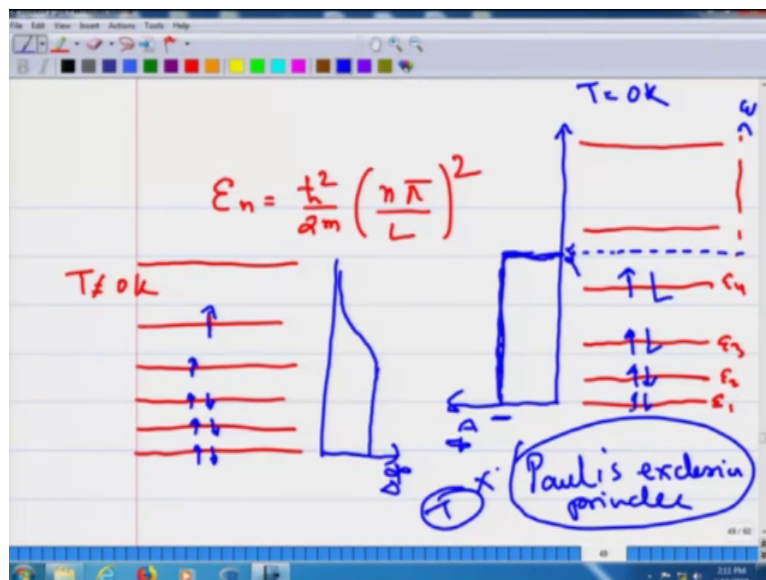 File Edit View Insert Actions Tools Help
B I
T = 0K
ω
εn = ħ²/2m (nπ/L)²
T ≠ 0K
ε4
ε3
ε2
ε1
T
Pauli's exclusin
princlee
49 / 60
49
2:11 PM